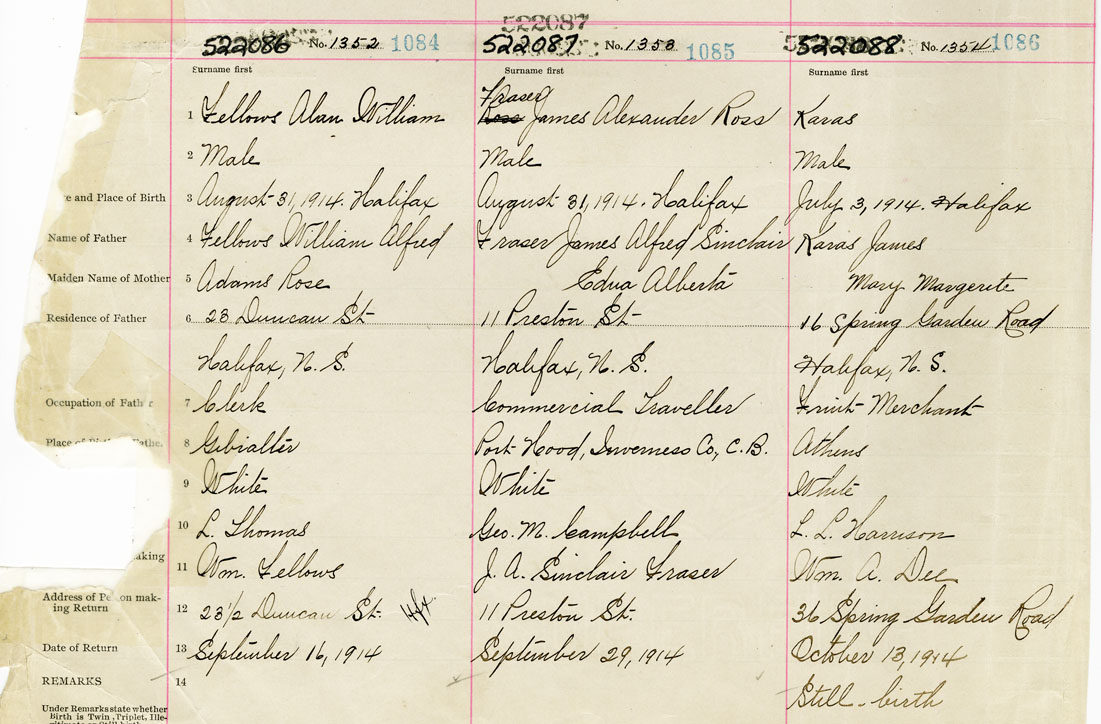 522087
522086 No. 1352 1084
522087 No. 1353 1085
522088 No. 1354 1086
Surname first Surname first Surname first
Fraser
1 Fellows Alan William Ross James Alexander Ross Karas
2 Male Male Male
e and Place of Birth 3 August 31, 1914. Halifax August 31, 1914. Halifax July 3, 1914. Halifax
Name of Father 4 Fellows William Alfred Fraser James Alfred Sinclair Karas James
Maiden Name of Mother 5 Adams Rose Edna Alberta Mary Margerite
Residence of Father 6 23 Duncan St. 11 Preston St. 16 Spring Garden Road
Halifax, N. S. Halifax, N. S. Halifax, N. S.
Occupation of Fath r 7 Clerk Commercial Traveller Fruit Merchant
Place of Birth Fathe. 8 Gibralter Port Hood, Inverness Co., C. B. Athens
9 White White White
10 L. Thomas Geo. M. Campbell L. L. Harrison
aking 11 Wm. Fellows J. A. Sinclair Fraser Wm. A. Dee
Address of Pe on mak-
ing Return 12 23 1/2 Duncan St. Hfx 11 Preston St. 36 Spring Garden Road
Date of Return 13 September 16, 1914 September 29, 1914 October 13, 1914
REMARKS 14 Still-birth
Under Remarks state whether
Birth is Twin, Triplet, Ille-
gitimate or Still birth